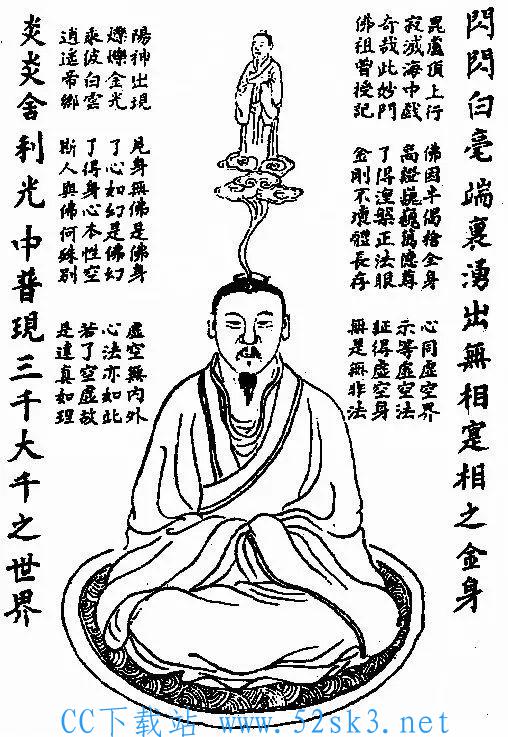 閃閃白毫端裏湧出無相寔相之金身
毘盧頂上行
寂滅海中戲
奇哉此妙門
佛祖曾授記
佛因半偈捨全身
高證巍巍萬德尊
了得涅槃正法眼
金剛不壞體長存
心同虛空界
示等虛空法
証得虛空身
無是無非法
陽神出現
爍爍金光
乘彼白雲
逍遙帝鄉
見身無佛是佛身
了心如幻是佛幻
了得身心本性空
斯人與佛何殊別
虛空無內外
心法亦如此
若了空虛故
是達真如理
炎炎舍利光中普現三千大千之世界
CC下载站 www.52sk3.net